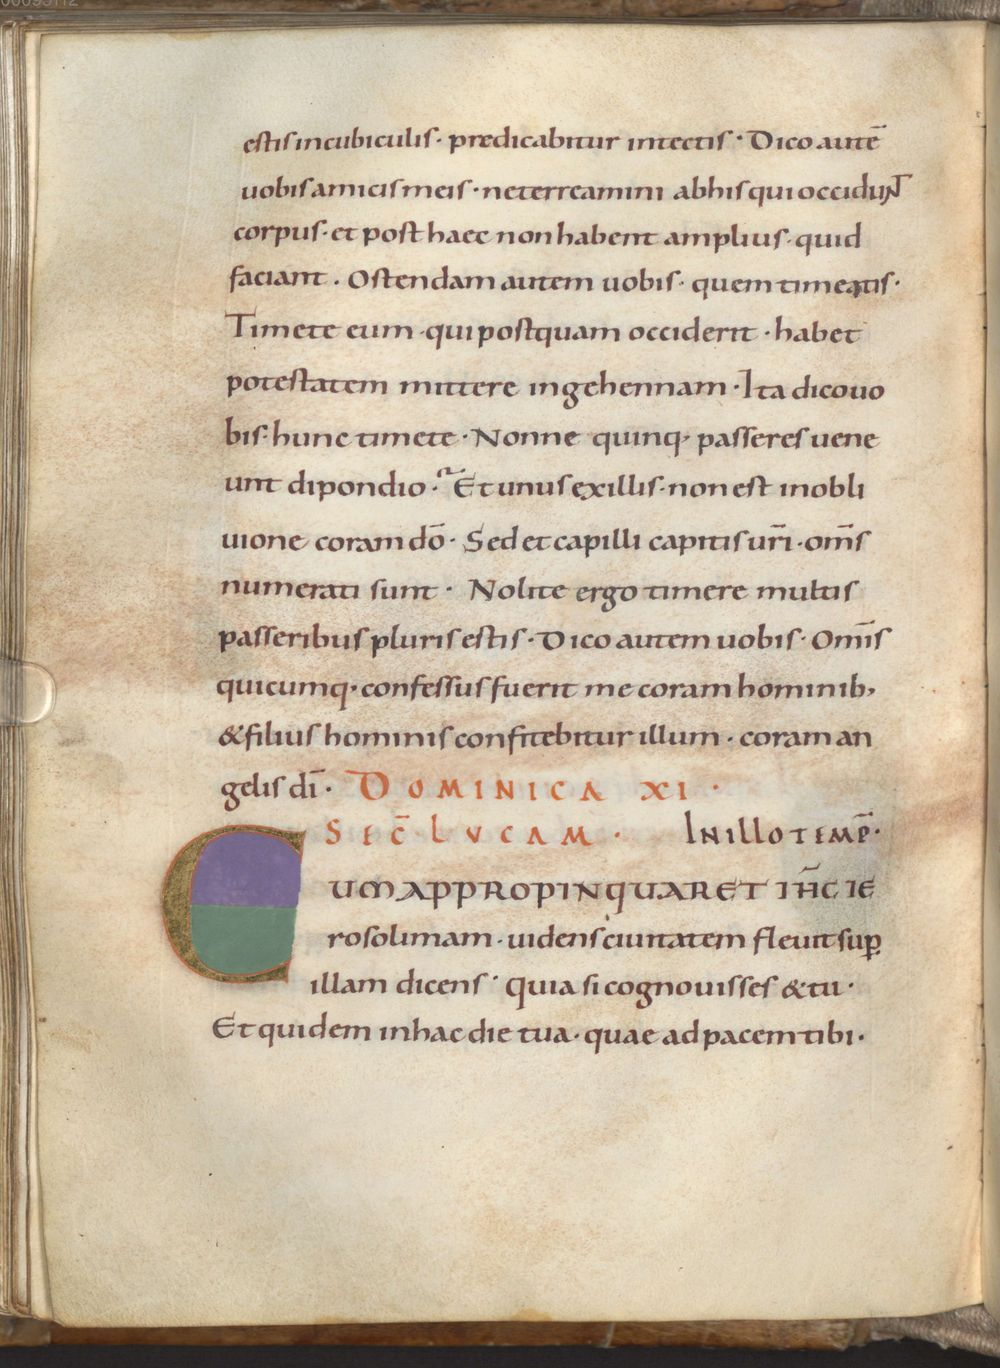 estis in cubiculis· predicabitur in tectis· Dico autē
uobis amicis meis· ne terreamini ab his qui occidunt
corpus· et post haec non habent amplius· quid
faciant. Ostendam autem uobis· quem timeatis·
Timete eum· qui postquam occiderit· habet
potestatem mittere in gehennam· Ita dico uo
bis· hunc timete· Nonne quinq· passeres uene
unt dipondio· Et unus ex illis· non est in obli
uione coram dō· Sed et capilli capitis ur̄i· om̄s
numerati sunt· Nolite ergo timere multis
passeribus pluris estis· Dico autem uobis· Om̄is
quicumq· confessus fuerit me coram hominib,
& filius hominis confitebitur illum· coram an
gelis dī· DOMINICA XI·
SEC̄· LVCAM· IN ILLO TEMP̄·
CUM APPROPINQUARET IH̄C IE
rosolimam· uidens ciuitatem fleuit sup̱
illam dicens· Quia si cognouisses & tu·
Et quidem in hac die tua· quae ad pacem tibi·